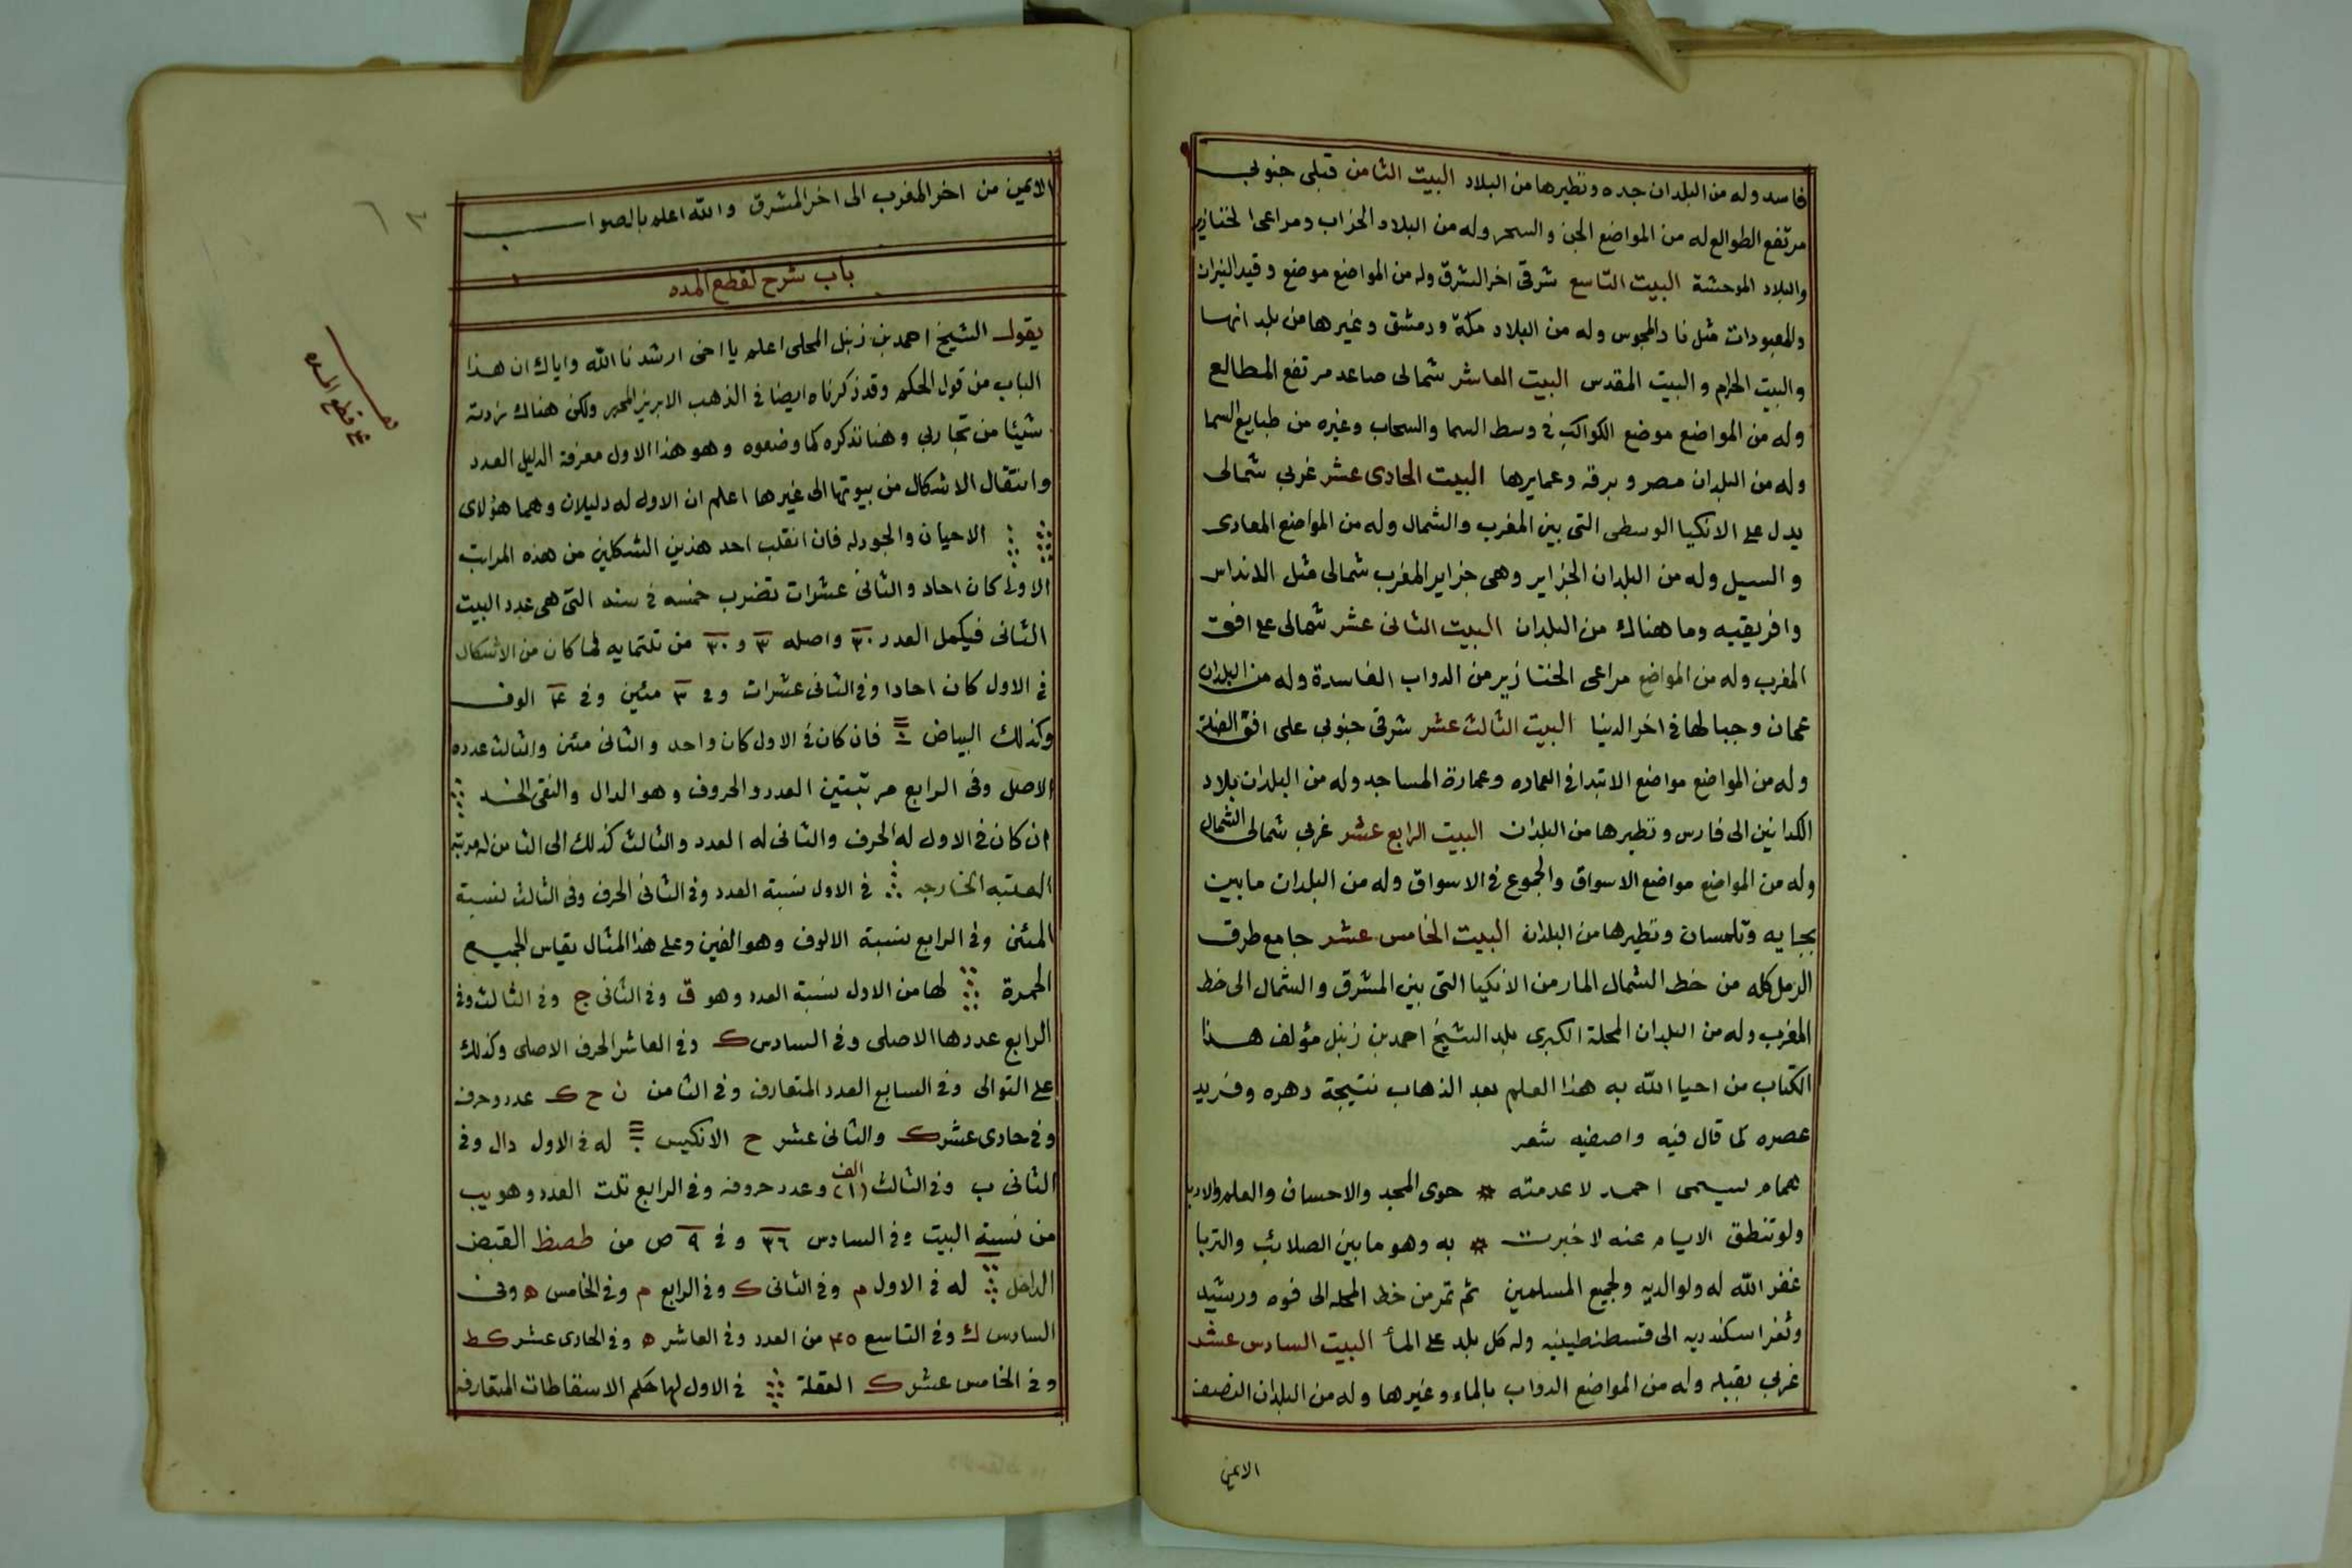 فاسد وله من البلدان جده ونظيرها من البلاد البيت الثامن قبلى جنوبى
مرتفع الطوالع له من المواضع الجبن والسحر وله من البلاد الخراب ومراعى الخنازير
والبلاد الموحشة البيت التاسع شرقى اخر الشرق وله من المواضع موضع وقيد النيران
والمعبودات مثل نار المجوس وله من البلاد مكة ودمشق وغيرها من بلد انها
والبيت الحرام والبيت المقدس البيت العاشر شمالى صاعد مرتفع المطالع
وله من المواضع موضع الكواكب فى وسط السما والسحاب وغيره من طبايع السما
وله من البلدان مصر وبرقه وعمايرها البيت الحادى عشر غربى شمالى
يدل على الانكيا الوسطى التى بين المغرب والشمال وله من المواضع المعادى
والسيل وله من البلدان الجزاير وهى جزاير المغرب شمالى مثل الانداس
وافريقيه وما هناك من البلدان البيت الثانى عشر شمالى على افق
المغرب وله من المواضع مراعى الخنازير من الدواب الفاسدة وله من البلدان
عمان وجبالها فى اخر الدنيا البيت الثالث عشر شرقى جنوبى على افق
وله من المواضع مواضع الابتدا فى العماره وعمارة المساجد وله من البلدان بلاد
الكدانين الى فارس ونظيرها من البلدان البيت الرابع عشر غربى شمالى الشمال
وله من المواضع مواضع الاسواق والجموع فى الاسواق وله من البلدان مابين
بجايه وتلمسان ونظيرها من البلدان البيت الخامس عشر جامع طرق
الرمل كله من خط الشمال المار من الانكيا التى بين المشرق والشمال الى خط
المغرب وله من البلدان المحلة الكبرى بلد الشيخ احمد بن زنبل مؤلف هذا
الكتاب من احيا الله به هذا العلم بعد الذهاب نتيجة دهره وفريد
عصره كما قال فيه واصفيه شعر
همام يسمى احمد لا عدمته * حوى المجد والاحسان والعلم والادبا
ولو تنطق الايام عنه لاخبرت * به وهو مابين الصلائب والتربا
غفر الله له ولوالديه ولجميع المسلمين ثم تمر من خط المحله الى فوه ورشيد
وثغر اسكندريه الى قسطنطينيه وله كل بلد على المأ البيت السادس عشر
غربى بقبله وله من المواضع الدواب بالماء وغيرها وله من البلدان النصف
الايمن
الايمن من اخر المغرب الى اخر المشرق والله اعلم بالصواب
باب شرح لقطع المده
قطع المده
يقول الشيخ احمد بن زنبل المحلى اعلم يا اخى ارشدنا الله واياك ان هذا
الباب من قول الحكم وقد ذكرناه ايضا فى الذهب الابريز المحرر ولكن هناك زدته
شيئا من تجاربى وهنا نذكره كما وضعوه وهو هذا الاول معرفة الدليل العدد
وانتقال الاشكال من بيوتها الى غيرها اعلم ان الاول له دليلان وهما هؤلاى
الاحيان والجودله فان انقلب احد هذين الشكلين من هذه المراتب
الاولى كان احاد والثانى عشرات تضرب خمسه فى سته التى هى عدد البيت
الثانى فيكمل العدد ٣٠ واصله ٣ و ٣٠ من ثلتمايه لما كان من الاشكال
فى الاول كان احادا وفى الثانى عشرات وفى ٣ مئين وفى ۴ الوف
وكذلك البياض فان كان فى الاول كان واحد والثانى مئن والثالث عدده
الاصل وفى الرابع مرتبتين العدد والحروف وهو الدال والنقى الخد
ان كان فى الاول له الحرف والثانى له العدد والثالث كذلك الى الثامن له مرتبه
العتبه الخارجه فى الاول نسبة العدد وفى الثانى الحرف وفى الثالث نسبة
المئن وفى الرابع نسبة الالوف وهو الفين وعلى هذا المثال يقاس الجميع
الحمرة لها من الاول نسبة العدد وهو ق وفى الثانى ج وفى الثالث وفى
الرابع عددها الاصلى وفى السادس ك وفى العاشر الحرف الاصلى وكذلك
على التوالى وفى السابع العدد المتعارف وفى الثامن ن ح ك عدد وحرف
وفى حادى عشر ك والثانى عشر ح الانكيس له فى الاول دال وفى
الثانى ب وفى الثالث (١٢) الف وعدد حروفه وفى الرابع ثلت العدد وهو يب
من نسبة البيت وفى السادس ٣٦ وفى ٩ ص من طصظ القبض
الداخل له فى الاول م وفى الثانى ك وفى الرابع م وفى الخامس ه وفى
السادس ك وفى التاسع ۴٥ من العدد وفى العاشر ه وفى الحادى عشر ك ط
وفى الخامس عشر ك العقلة فى الاول لها حكم الاسقاطات المتعارفه